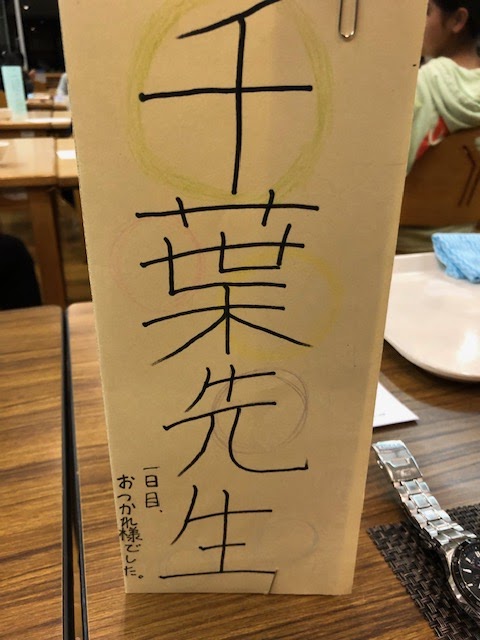 千葉先生
一日目、
おつかれ様でした。